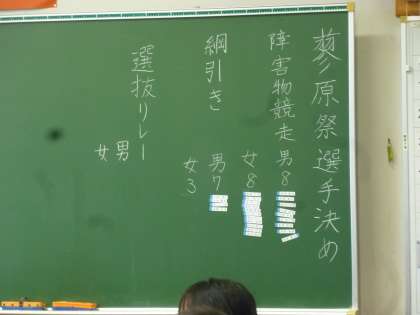 蓼原祭選手決め
障害物競走
男8
女8
綱引き
男7
女3
選抜リレー
男
女